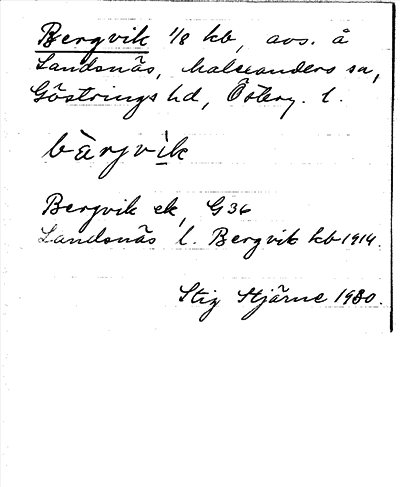 Bergvik 1/8 kb, avs. å
Landsnäs, Malexanders sn,
Göstrings hd, Österg. l.
bàrjvìk
Bergvik ek, G36
Landsnäs l. Bergvik kb 1914.
Stig Stjärne 1980.